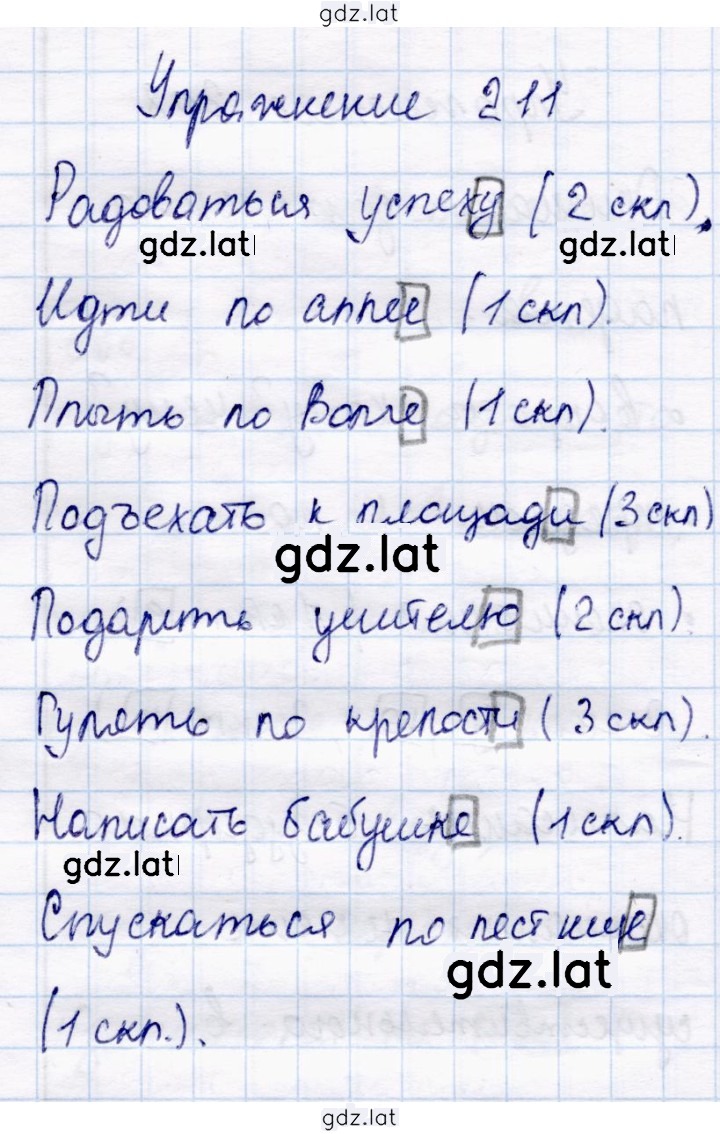 gdz.lat
Упражнение 211
Радоваться успеху (2 скл).
gdz.lat gdz.lat
Идти по аллее (1 скл).
Плыть по Волге (1 скл).
Подъехать к площади (3 скл)
gdz.lat
Подарить учителю (2 скл).
Гулять по крепости (3 скл).
Написать бабушке (1 скл).
gdz.lat
Спускаться по лестнице
gdz.lat
(1 скл.).
gdz.lat